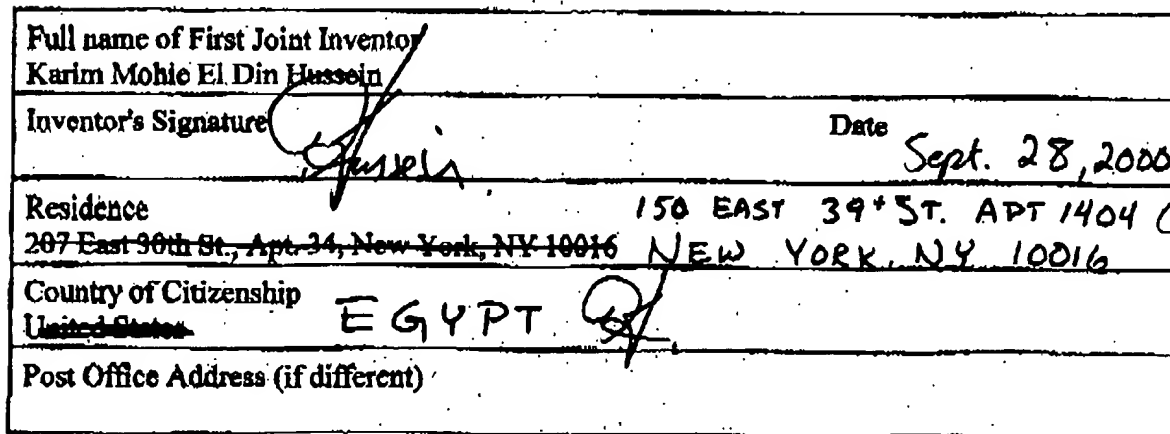 Full name of First Joint Inventor
Karim Mohie El Din Hussein
Inventor's Signature
Hussein
Date
Sept. 28, 2000
Residence
150 EAST 39th ST. APT 1404
207 East 30th St., Apt. 34, New York, NY 10016 NEW YORK, NY 10016
Country of Citizenship
United States EGYPT
Post Office Address (if different)